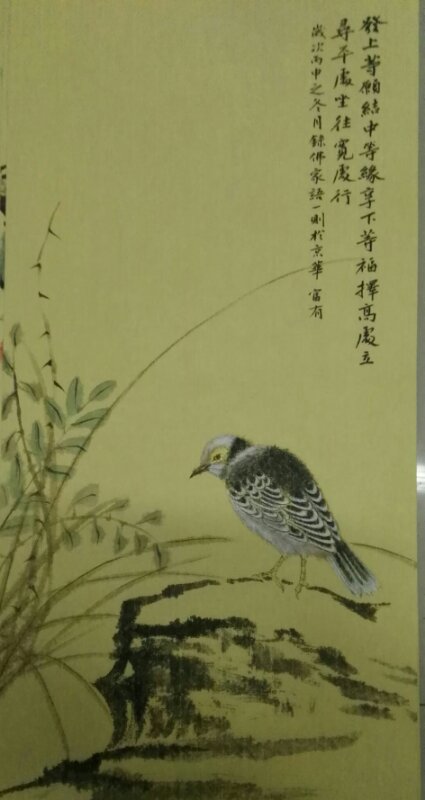 發上等願結中等緣享下等福擇高處立
尋平處坐往寬處行
歲次丙申之冬月錄佛家語一則於京華 富有